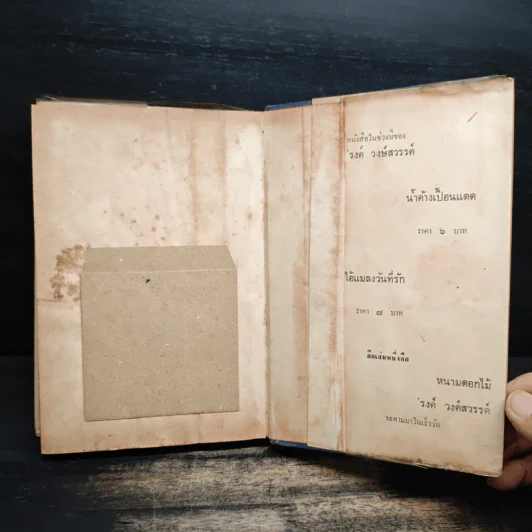 หนังสือในช่วงนี้ของ
'รงค์ วงษ์สวรรค์
น้ำค้างเปื้อนแดด
ราคา ๖ บาท
ไอ้แมลงวันที่รัก
ราคา ๗ บาท
คือเล่มหนึ่งคือ
หนามดอกไม้
'รงค์ วงศ์สวรรค์
จะตามมาในเร็ววัน